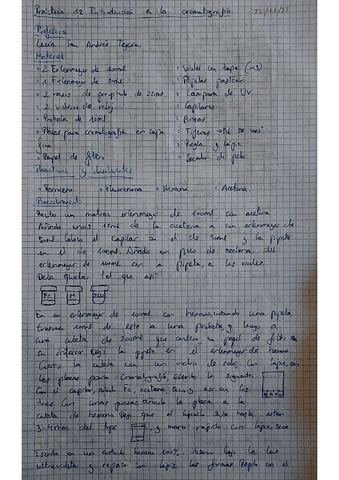 Práctica 12 Introducción a la cromatografía 22/11/23
Profesora
Lucía San Andrés Tejera.
Material
- 2 Erlenmeyer de 100ml
- 1 Erlenmeyer de 50ml
- 2 vasos de precipitado de 250ml
- 2 vidrios de reloj
- Probeta de 10ml
- Placas para cromatografía en capa
fina
- Papel de filtro
- Viales con tapa (x3)
- Pipetas pasteur
- Lámpara de UV
- Capilares
- Pinzas
- Tijeras → No se usó
- Regla y lápiz
- Secador de pelo
Reactivos y disolventes
- Ferroceno - Fluorenona - Hexano - Acetona
Procedimiento
en un matraz erlenmeyer de 100ml con acetona
Añado unos 10ml de la acetona a un erlenmeyer de
50ml. Coloco el capilar en el de 50ml y la pipeta
en el de 100ml. Añado un poco de acetona del
erlenmeyer de 100ml con la pipeta, a los viales
Debe quedar tal que así:
Fc M Fluo
En un erlenmeyer de 100ml con hexano, usando una pipeta,
10ml de este a una probeta, y luego a
una cubeta de 200ml que contiene un papel de filtro en
su interior. Dejo la pipeta en el erlenmeyer de hexano
Cierro la cubeta con un vidrio de reloj. Con lápiz, en
las placas para cromatografía, escribo lo siguiente:
Con el capilar, añado Fc, acetona
Con unas pinzas, añado la placa a la
cubeta de hexano. Dejo que el líquido suba hasta estar
3-4mm del tope, y marco rápido con lápiz, seco
Escribo en un costado hexano 100%. Observo bajo la luz
ultravioleta y repaso con lápiz las formas. Repito con el